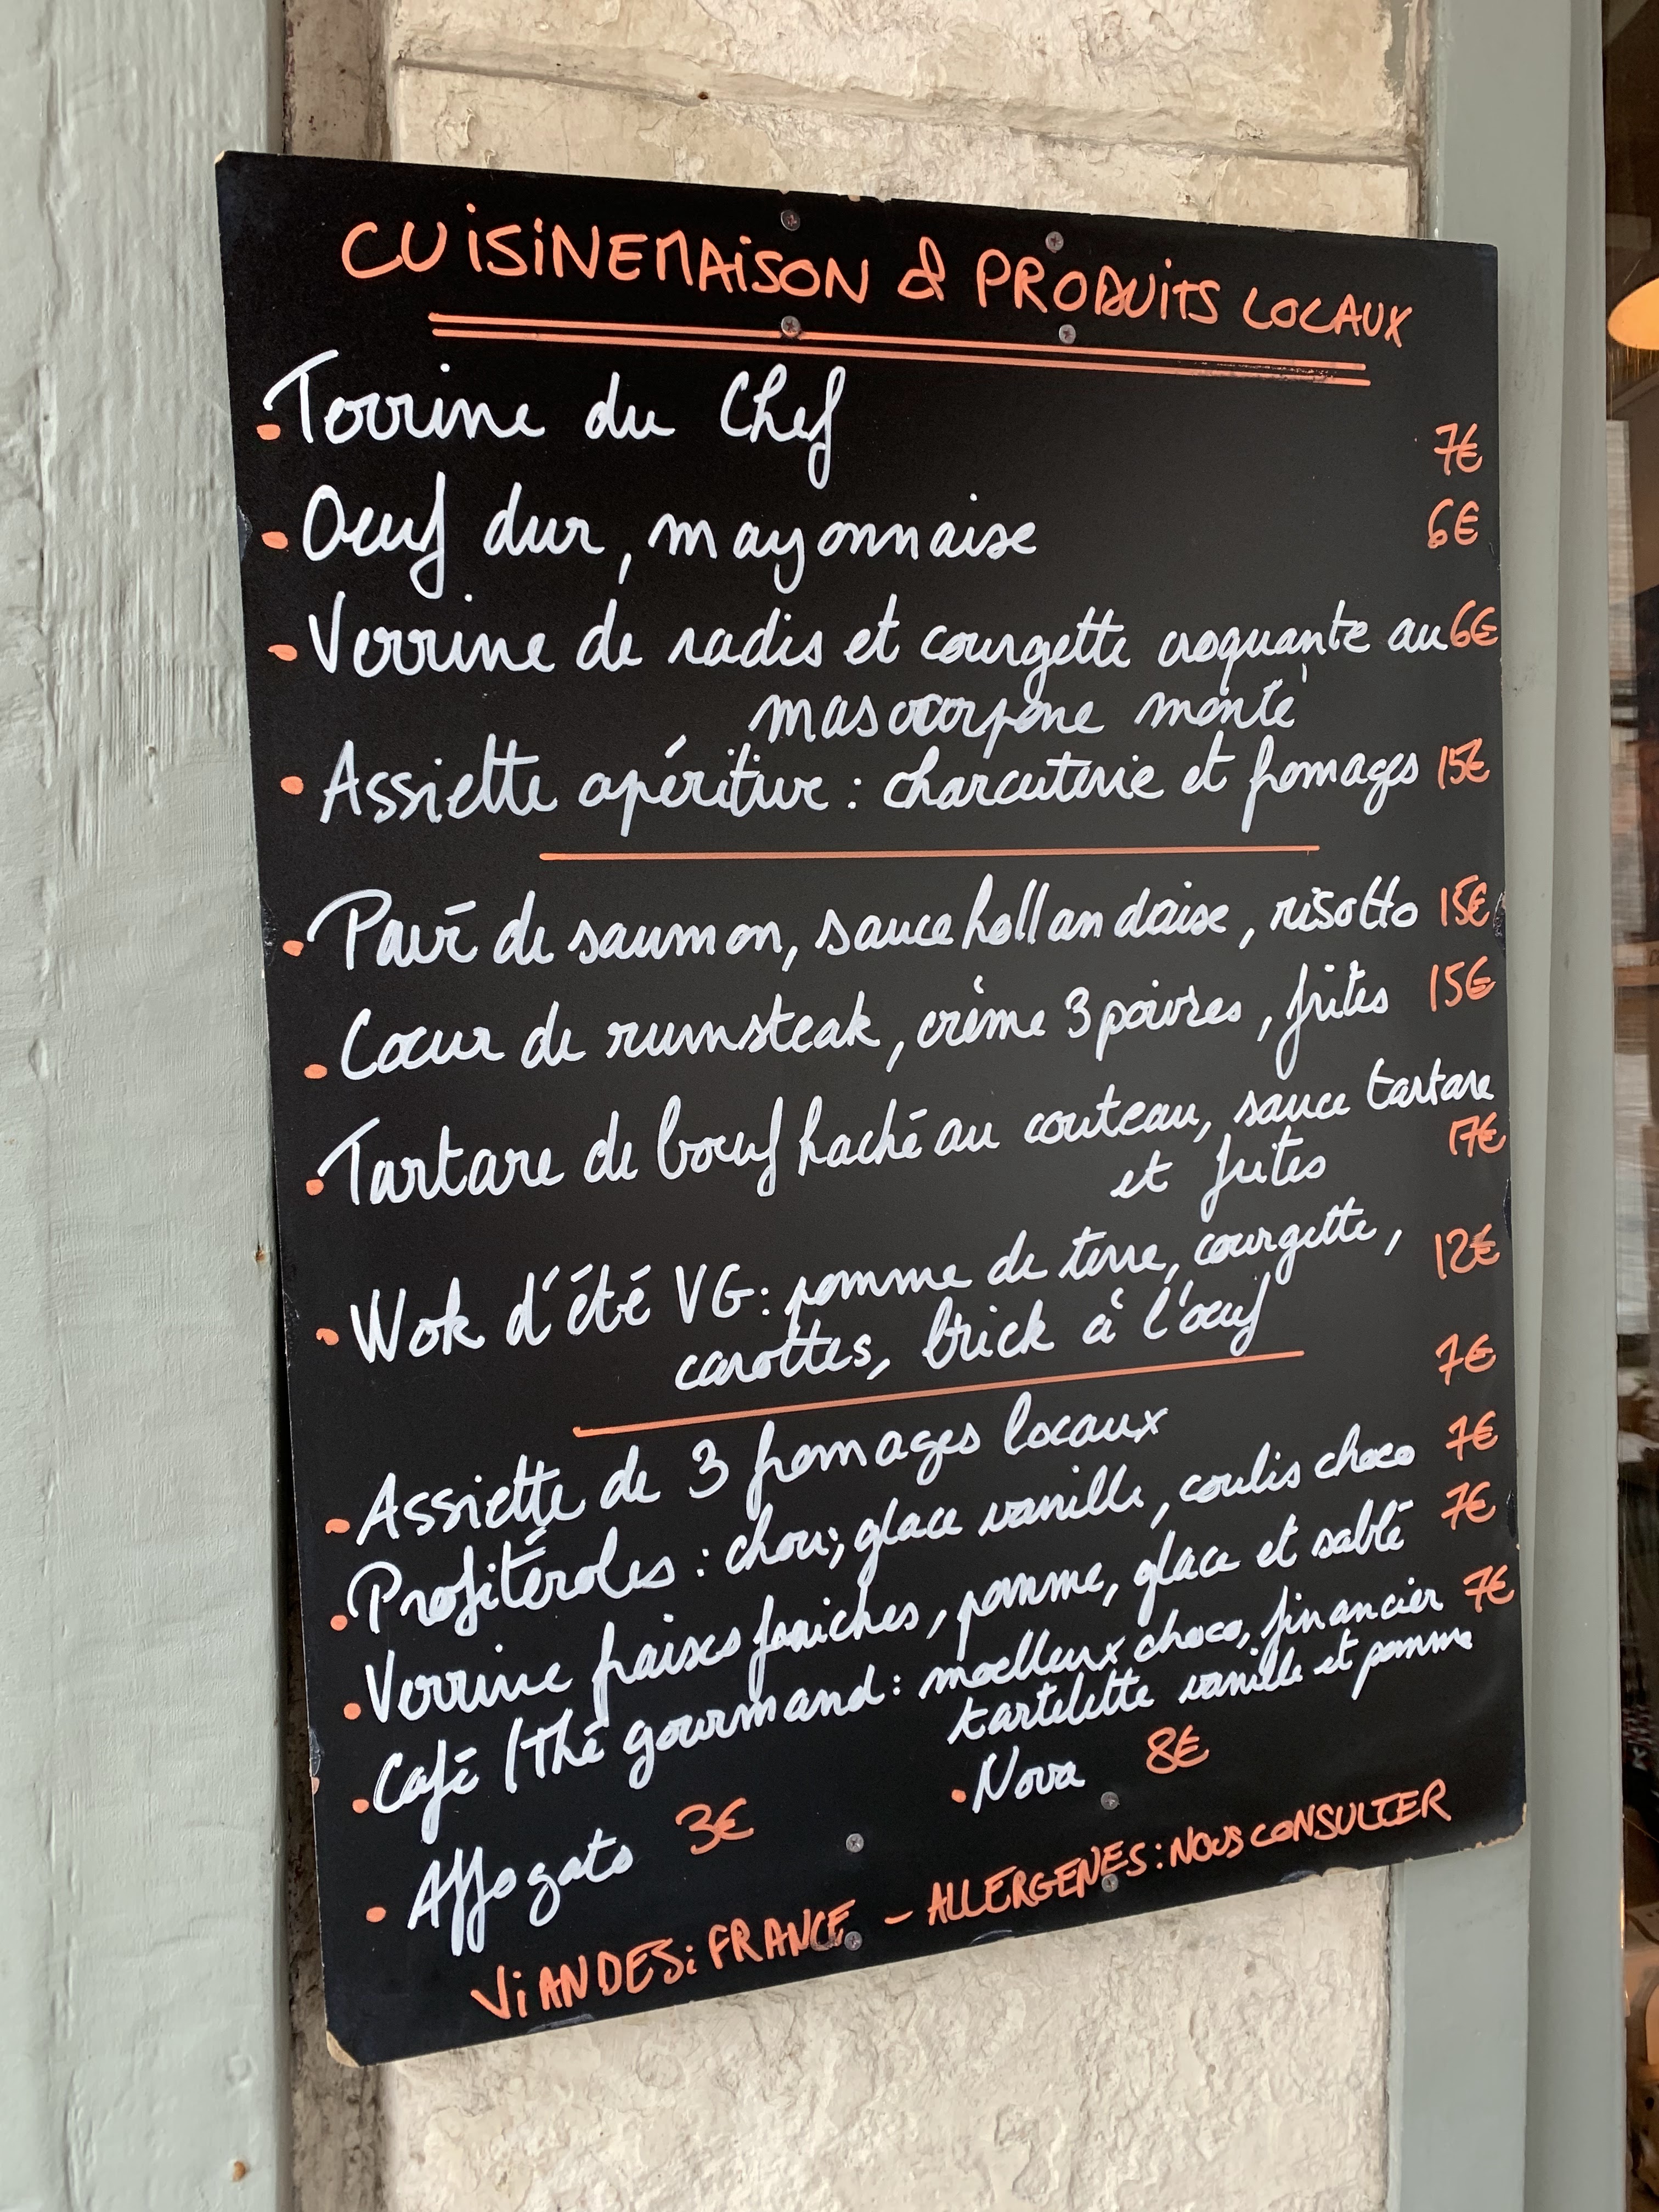 CUISINE MAISON & PRODUITS LOCAUX
Terrine du Chef 7€
Oeuf dur, mayonnaise 6€
Verrine de radis et courgette croquante au 6€
mascarpone monté
Assiette apéritive : charcuterie et fromages 15€
Pavé de saumon, sauce hollandaise, risotto 15€
Coeur de rumsteak, crème 3 poivres, frites 15€
Tartare de boeuf haché au couteau, sauce tartare
et frites 17€
Wok d'été VG : pomme de terre, courgette, 12€
carottes, brick à l'oeuf
Assiette de 3 fromages locaux 7€
Profitéroles : chou, glace vanille, coulis choco 7€
Verrine fraises fraiches, pomme, glace et sablé 7€
Café / Thé gourmand : moelleux choco, financier 7€
tartelette vanille et pomme
Affogato 3€
Nova 8€
VIANDES : FRANCE - ALLERGENES : NOUS CONSULTER